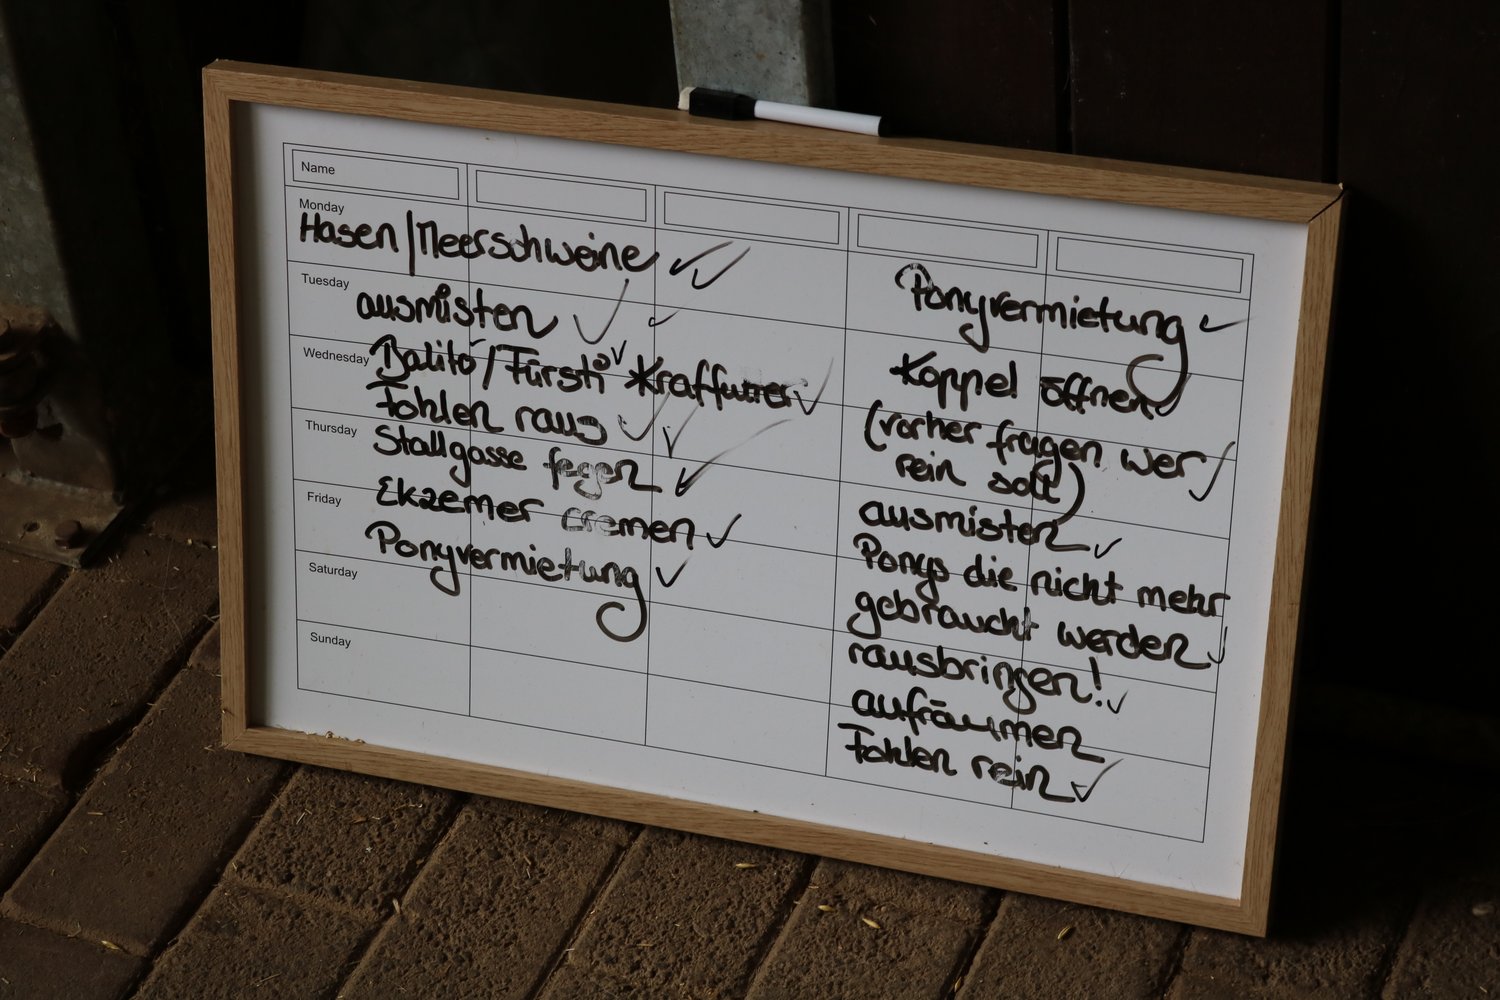 Name
Monday
Hasen/Meerschweine
Tuesday
ausmisten
Wednesday
Balito/Fürsti Kraffutter
Fohlen raus
Thursday
Stallgasse fegen
Friday
Ekzemer cremen
Ponyvermietung
Saturday
Sunday
Ponyvermietung
Koppel öffnen
(vorher fragen wer
rein soll)
ausmisten
Ponys die nicht mehr
gebraucht werden
rausbringen!
aufräumen
Fohlen rein